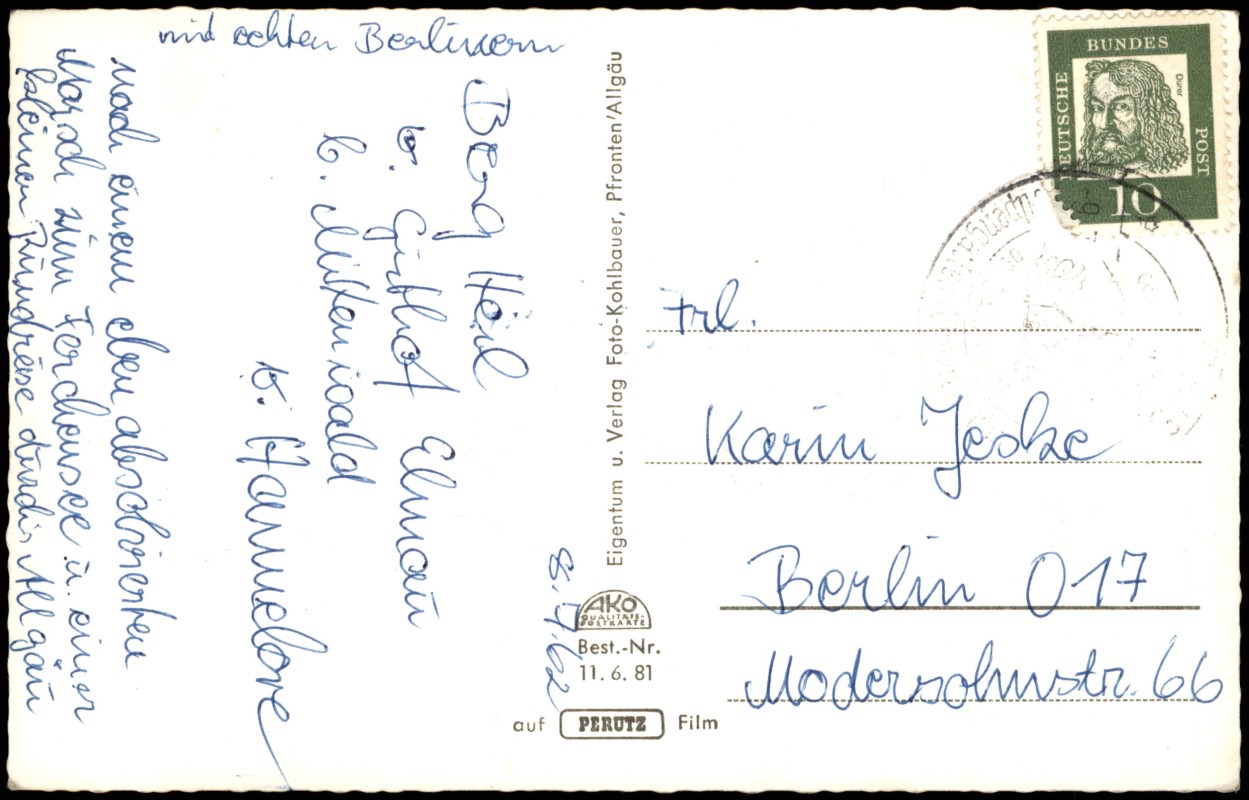 Nach einem eben absolvierten
Marsch zum Ferchensee u. einer
kleinen Rundreise durchs Allgäu
mit echten Berlinern
Berg Heil
b. Guthof Elmau
b. Mittenwald
v. Hannelore
8.7.62
Eigentum u. Verlag Foto-Kohlbauer, Pfronten/Allgäu
AKO
QUALITÄTS-
POSTKARTE
Best.-Nr.
11. 6. 81
auf PERUTZ Film
DEUTSCHE
BUNDES
POST
Dürer
10
Frl.
Karin Jeske
Berlin O17
Modersohnstr. 66